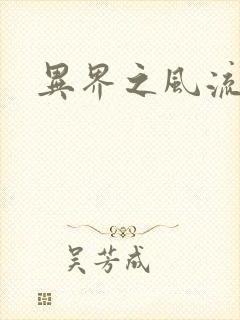 異界之風流
吴芳咸